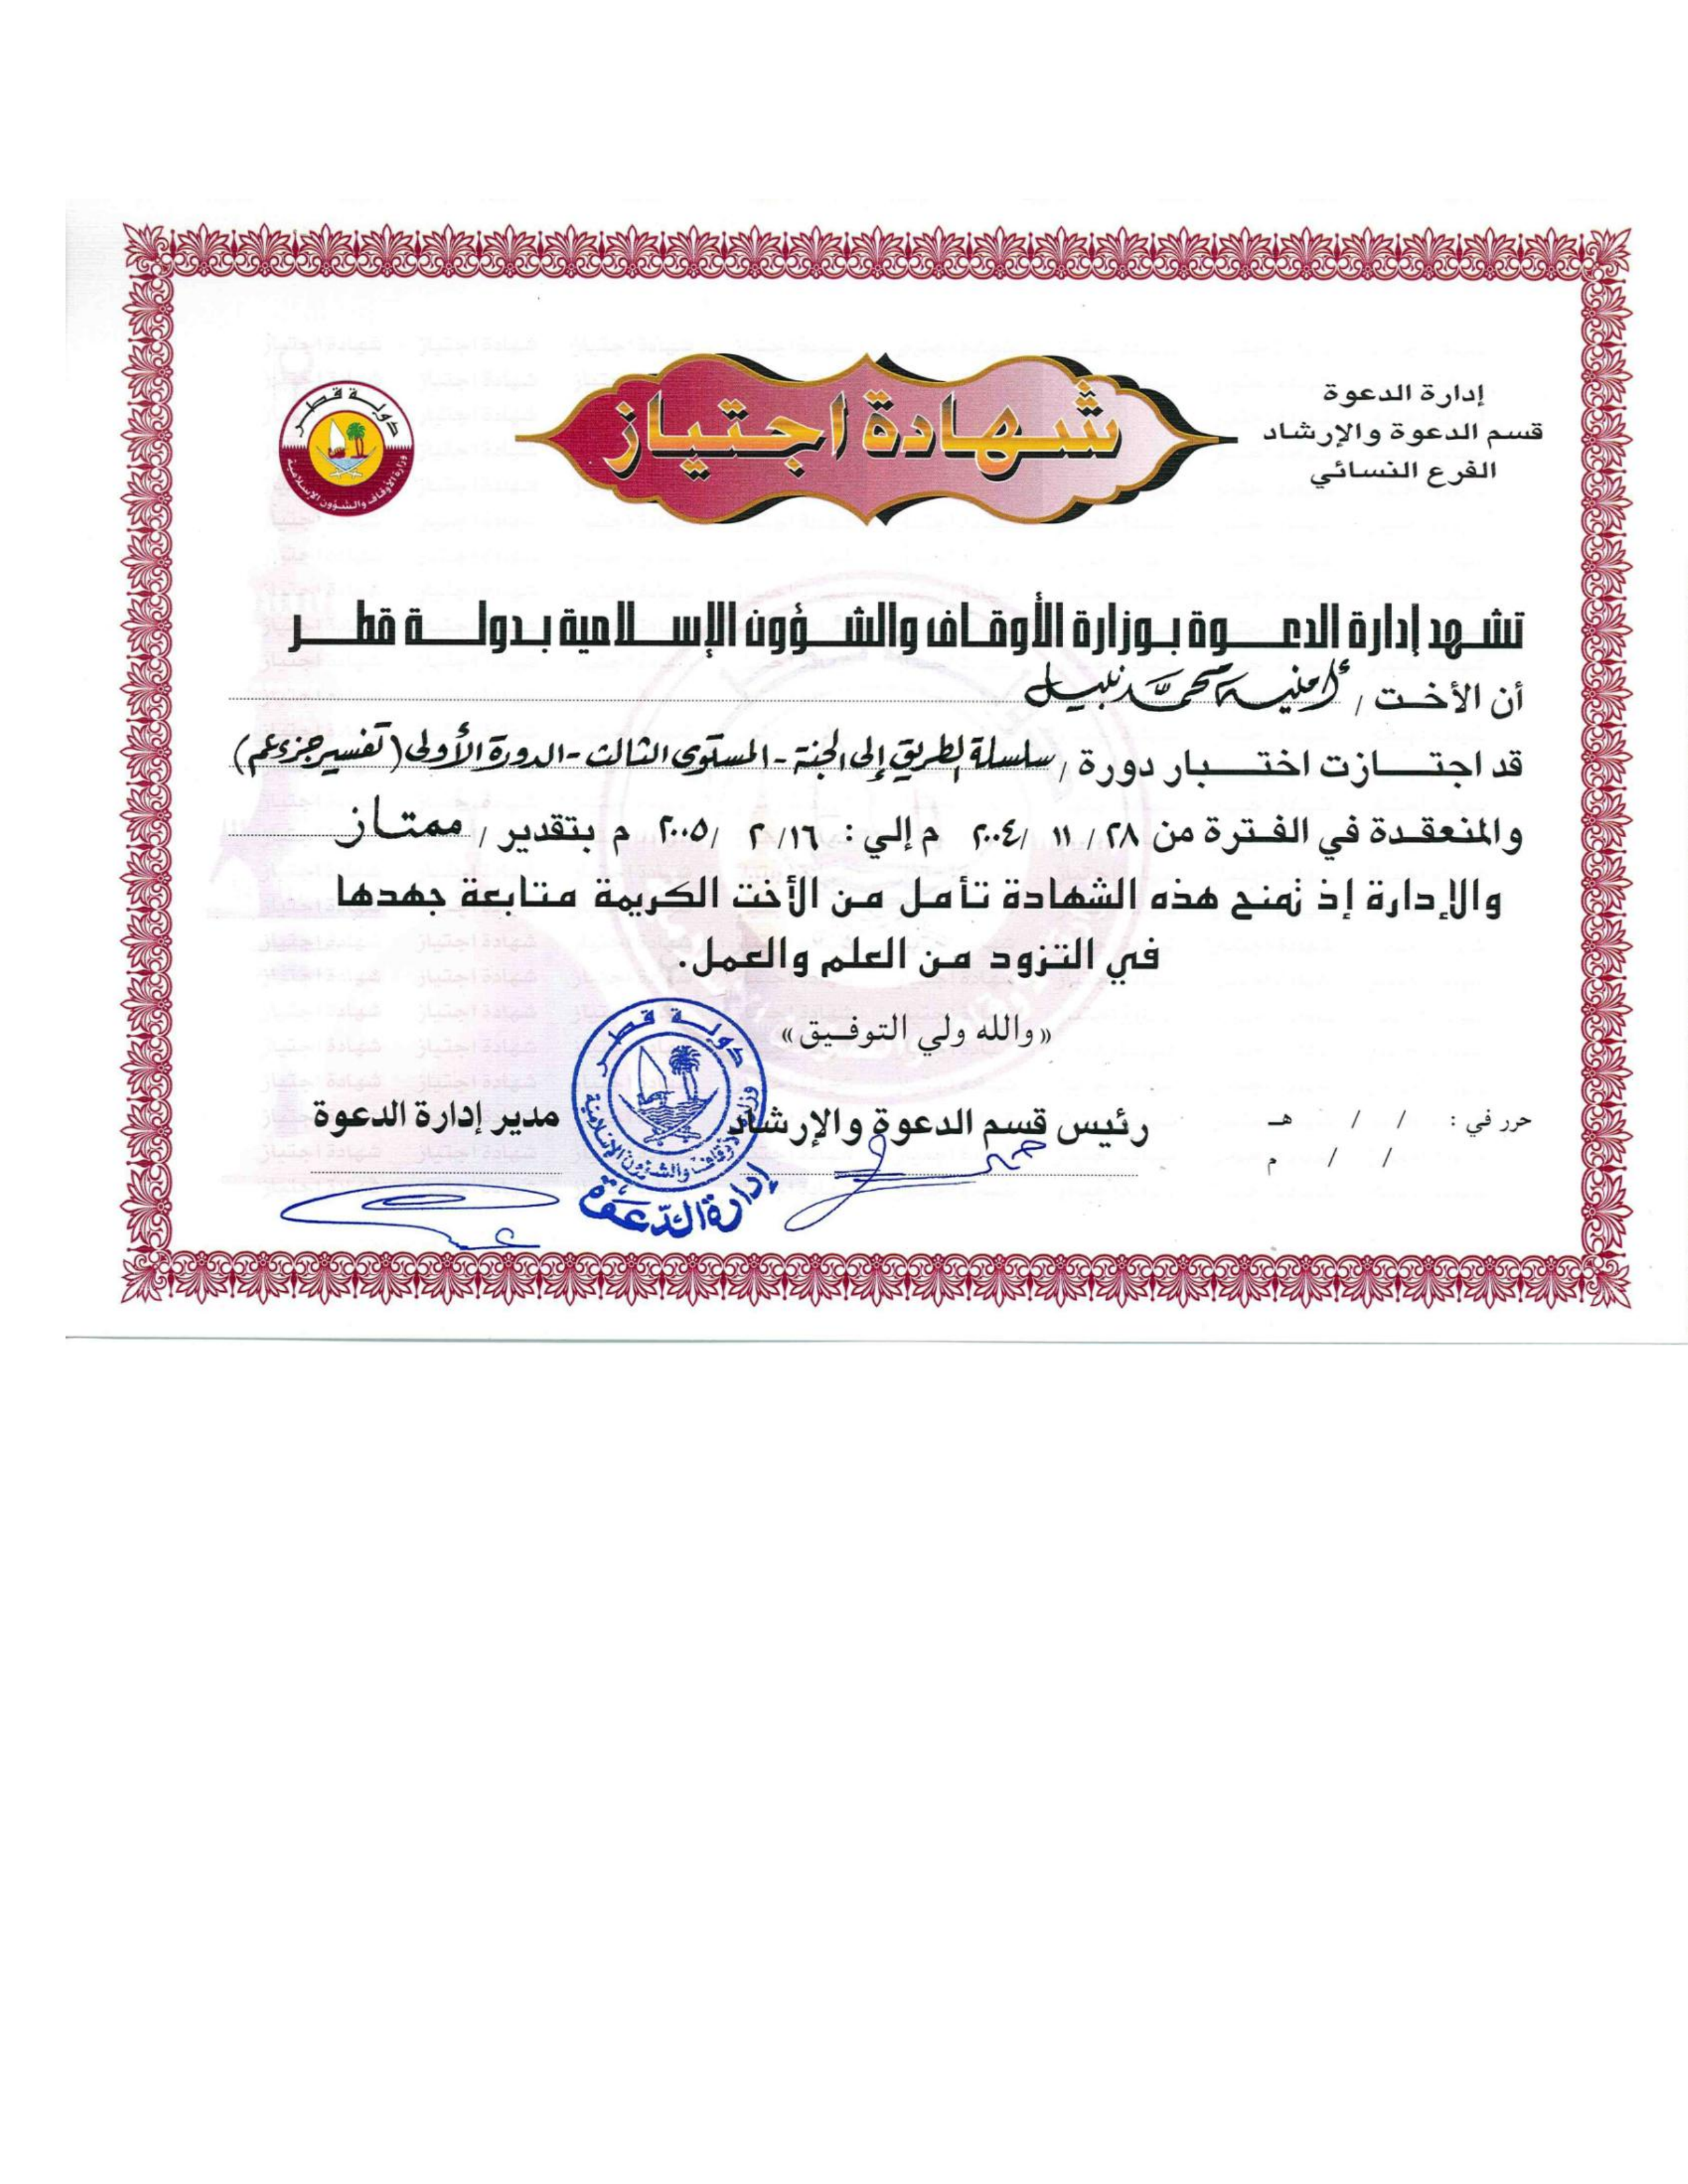 إدارة الدعوة
قسم الدعوة والإرشاد
الفرع النسائي
شهادة اجتياز
دولة قطر
وزارة الأوقاف والشؤون الإسلامية
تشهد إدارة الدعوة بوزارة الأوقاف والشؤون الإسلامية بدولة قطر
أن الأخت / أمنية محمد نبيل
قد اجتازت اختبار دورة / سلسلة الطريق إلى الجنة - المستوى الثالث - الدورة الأولى (تفسير جزء عم)
والمنعقدة في الفترة من ٢٨ / ١١ / ٢٠٠٤ م إلي : ١٦ / ٢ / ٢٠٠٥ م بتقدير / ممتاز
والإدارة إذ تمنح هذه الشهادة تأمل من الأخت الكريمة متابعة جهدها
في التزود من العلم والعمل.
«والله ولي التوفيق»
حرر في : / / هـ
/ / م
رئيس قسم الدعوة والإرشاد
مدير إدارة الدعوة
دولة قطر
وزارة الأوقاف والشؤون الإسلامية
إدارة الدعوة